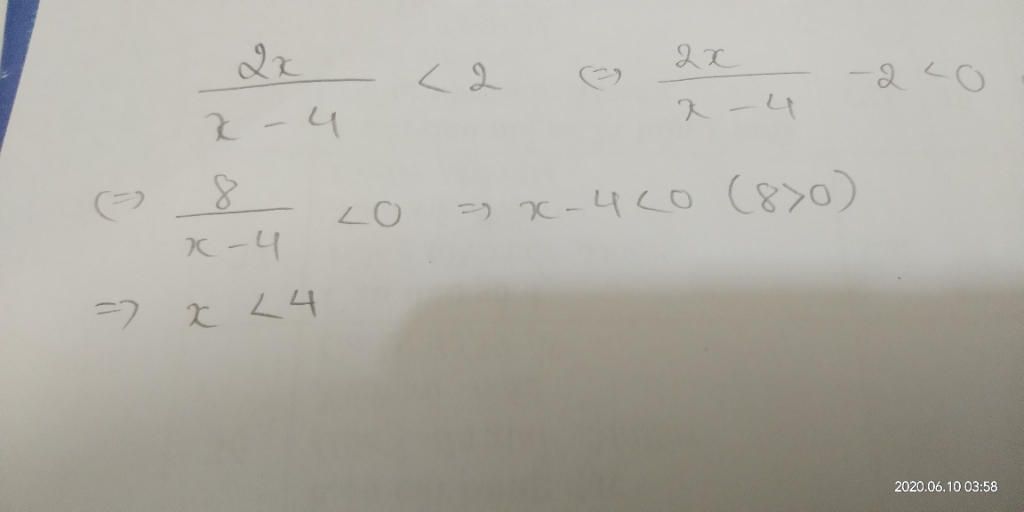 2x/(x-4) < 2 ⇔ 2x/(x-4) - 2 < 0
⇔ 8/(x-4) < 0 ⇒ x-4 < 0 (8>0)
⇒ x < 4
2020.06.10 03:58